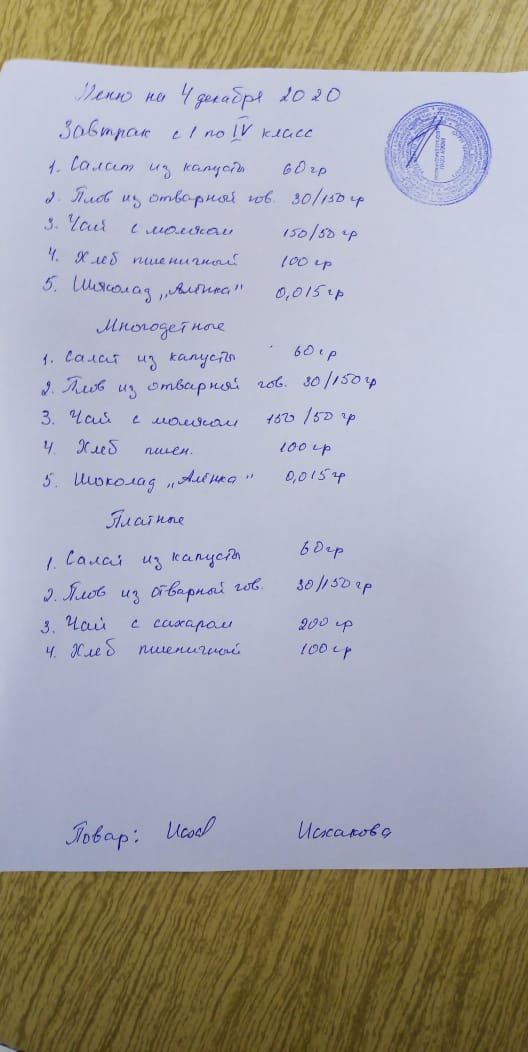 Меню на 4 декабря 2020
Завтрак с I по IV класс
1. Салат из капусты 60гр
2. Плов из отварной гов. 30/150гр
3. Чай с молоком 150/50гр
4. Хлеб пшеничный 100гр
5. Шоколад „Алёнка" 0,015гр
Многодетные
1. Салат из капусты 60гр
2. Плов из отварной гов. 30/150гр
3. Чай с молоком 150/50гр
4. Хлеб пшен. 100гр
5. Шоколад „Алёнка" 0,015гр
Платные
1. Салат из капусты 60гр
2. Плов из отварной гов. 30/150гр
3. Чай с сахаром 200гр
4. Хлеб пшеничный 100гр
Повар: Исхакова